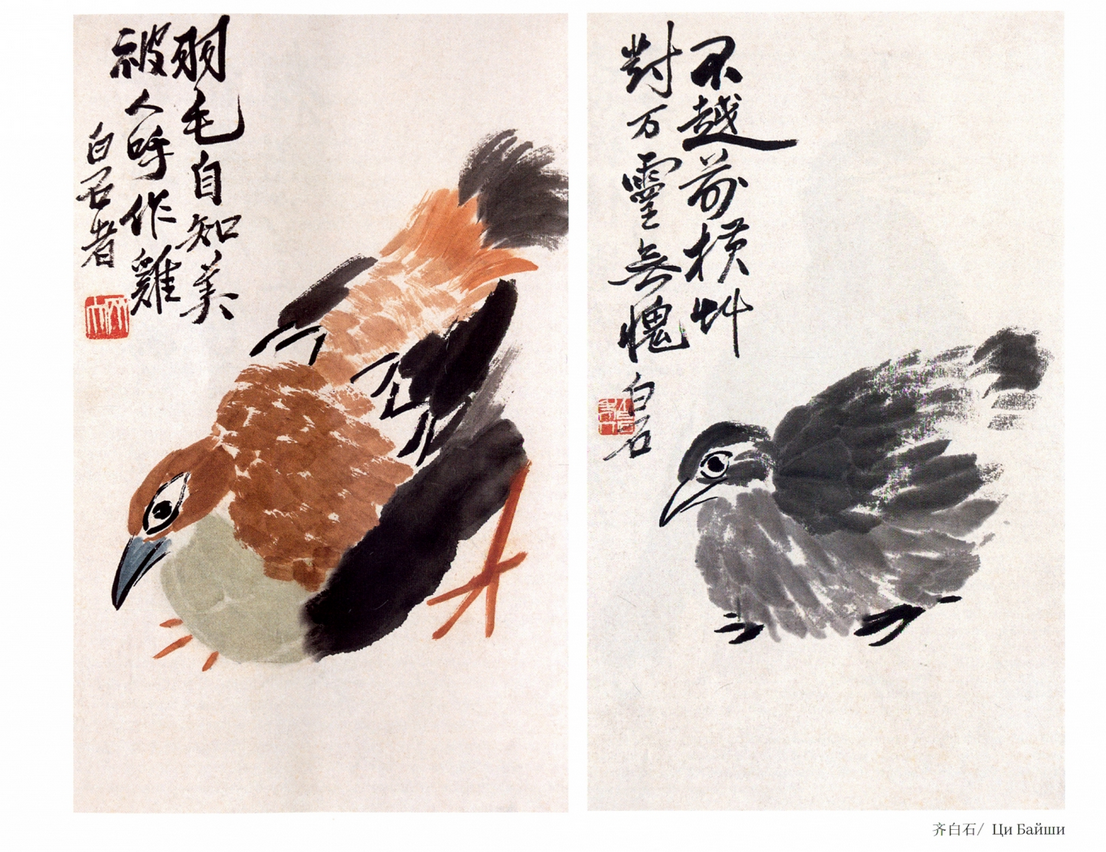 羽毛自知美
被人呼作雞
白石者
不越前横艸
對万靈無愧
白石
齐白石/ Ци Байши